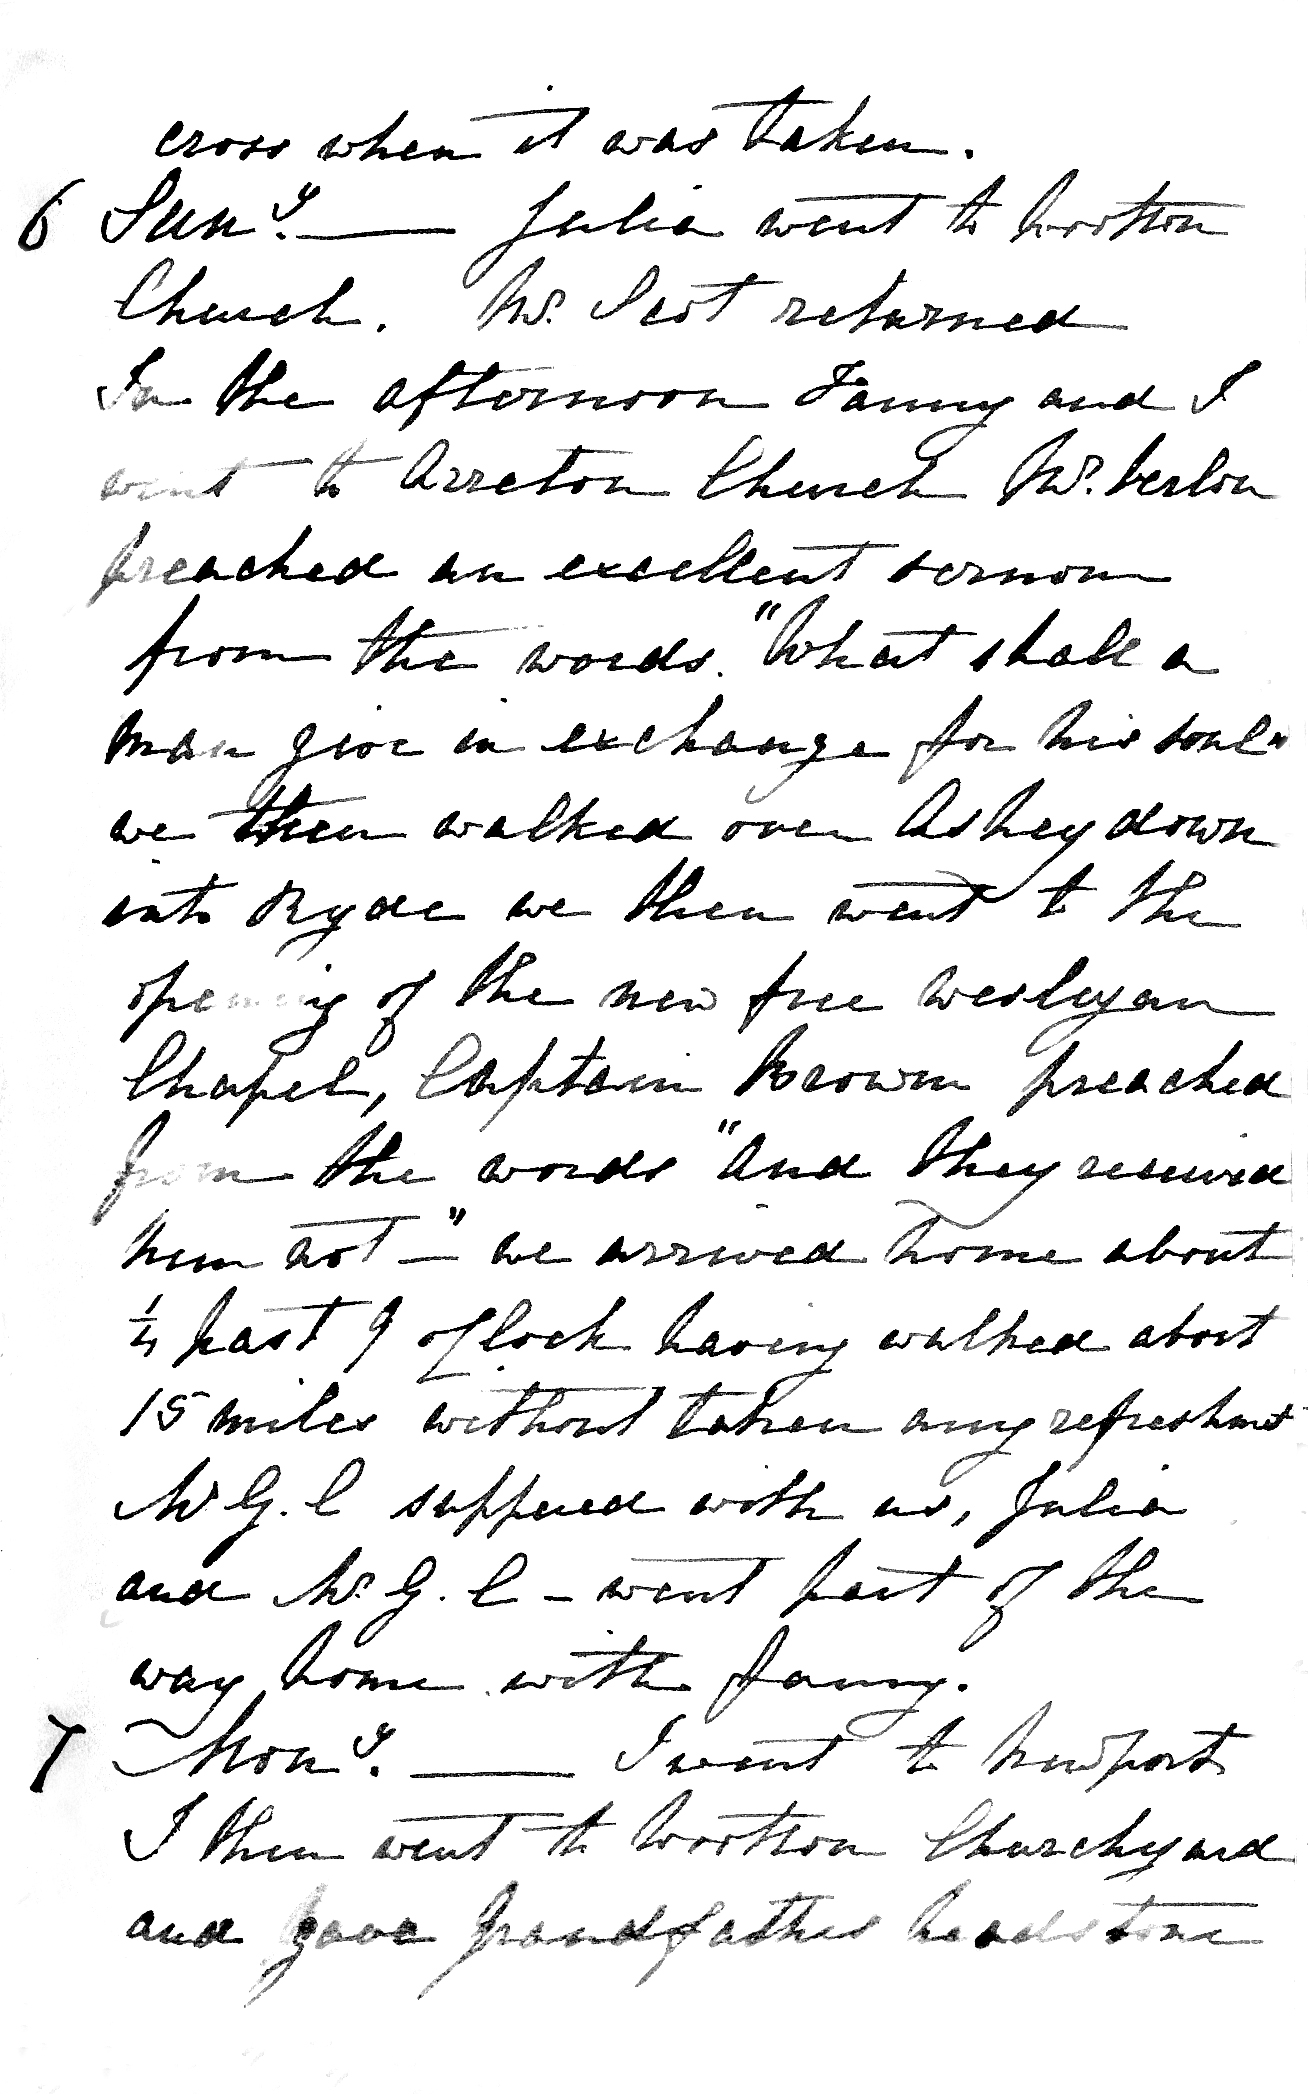 cross when it was taken.
6 Sunʸ. — Julia went to Wootton
Church. Mʳ. Scot returned
In the afternoon Fanny and I
went to Arreton Church Mʳ.
preached an excellent sermon
from the words. "What shall a
man give in exchange for his soul"
we then walked over Ashey down
into Ryde we then went to the
opening of the new free Wesleyan
Chapel, Captain Brown preached
from the words "And they received
him not —" we arrived home about
¼ past 9 oClock having walked about
15 miles without taken any refreshmt
Mʳ G. C suppered with us, Julia
and Mʳ. G. C – went part of the
way home with Fanny.
7 Monʸ. — I went to Newport
I then went to Wootton Churchyard
and gave Grandfathes headstone